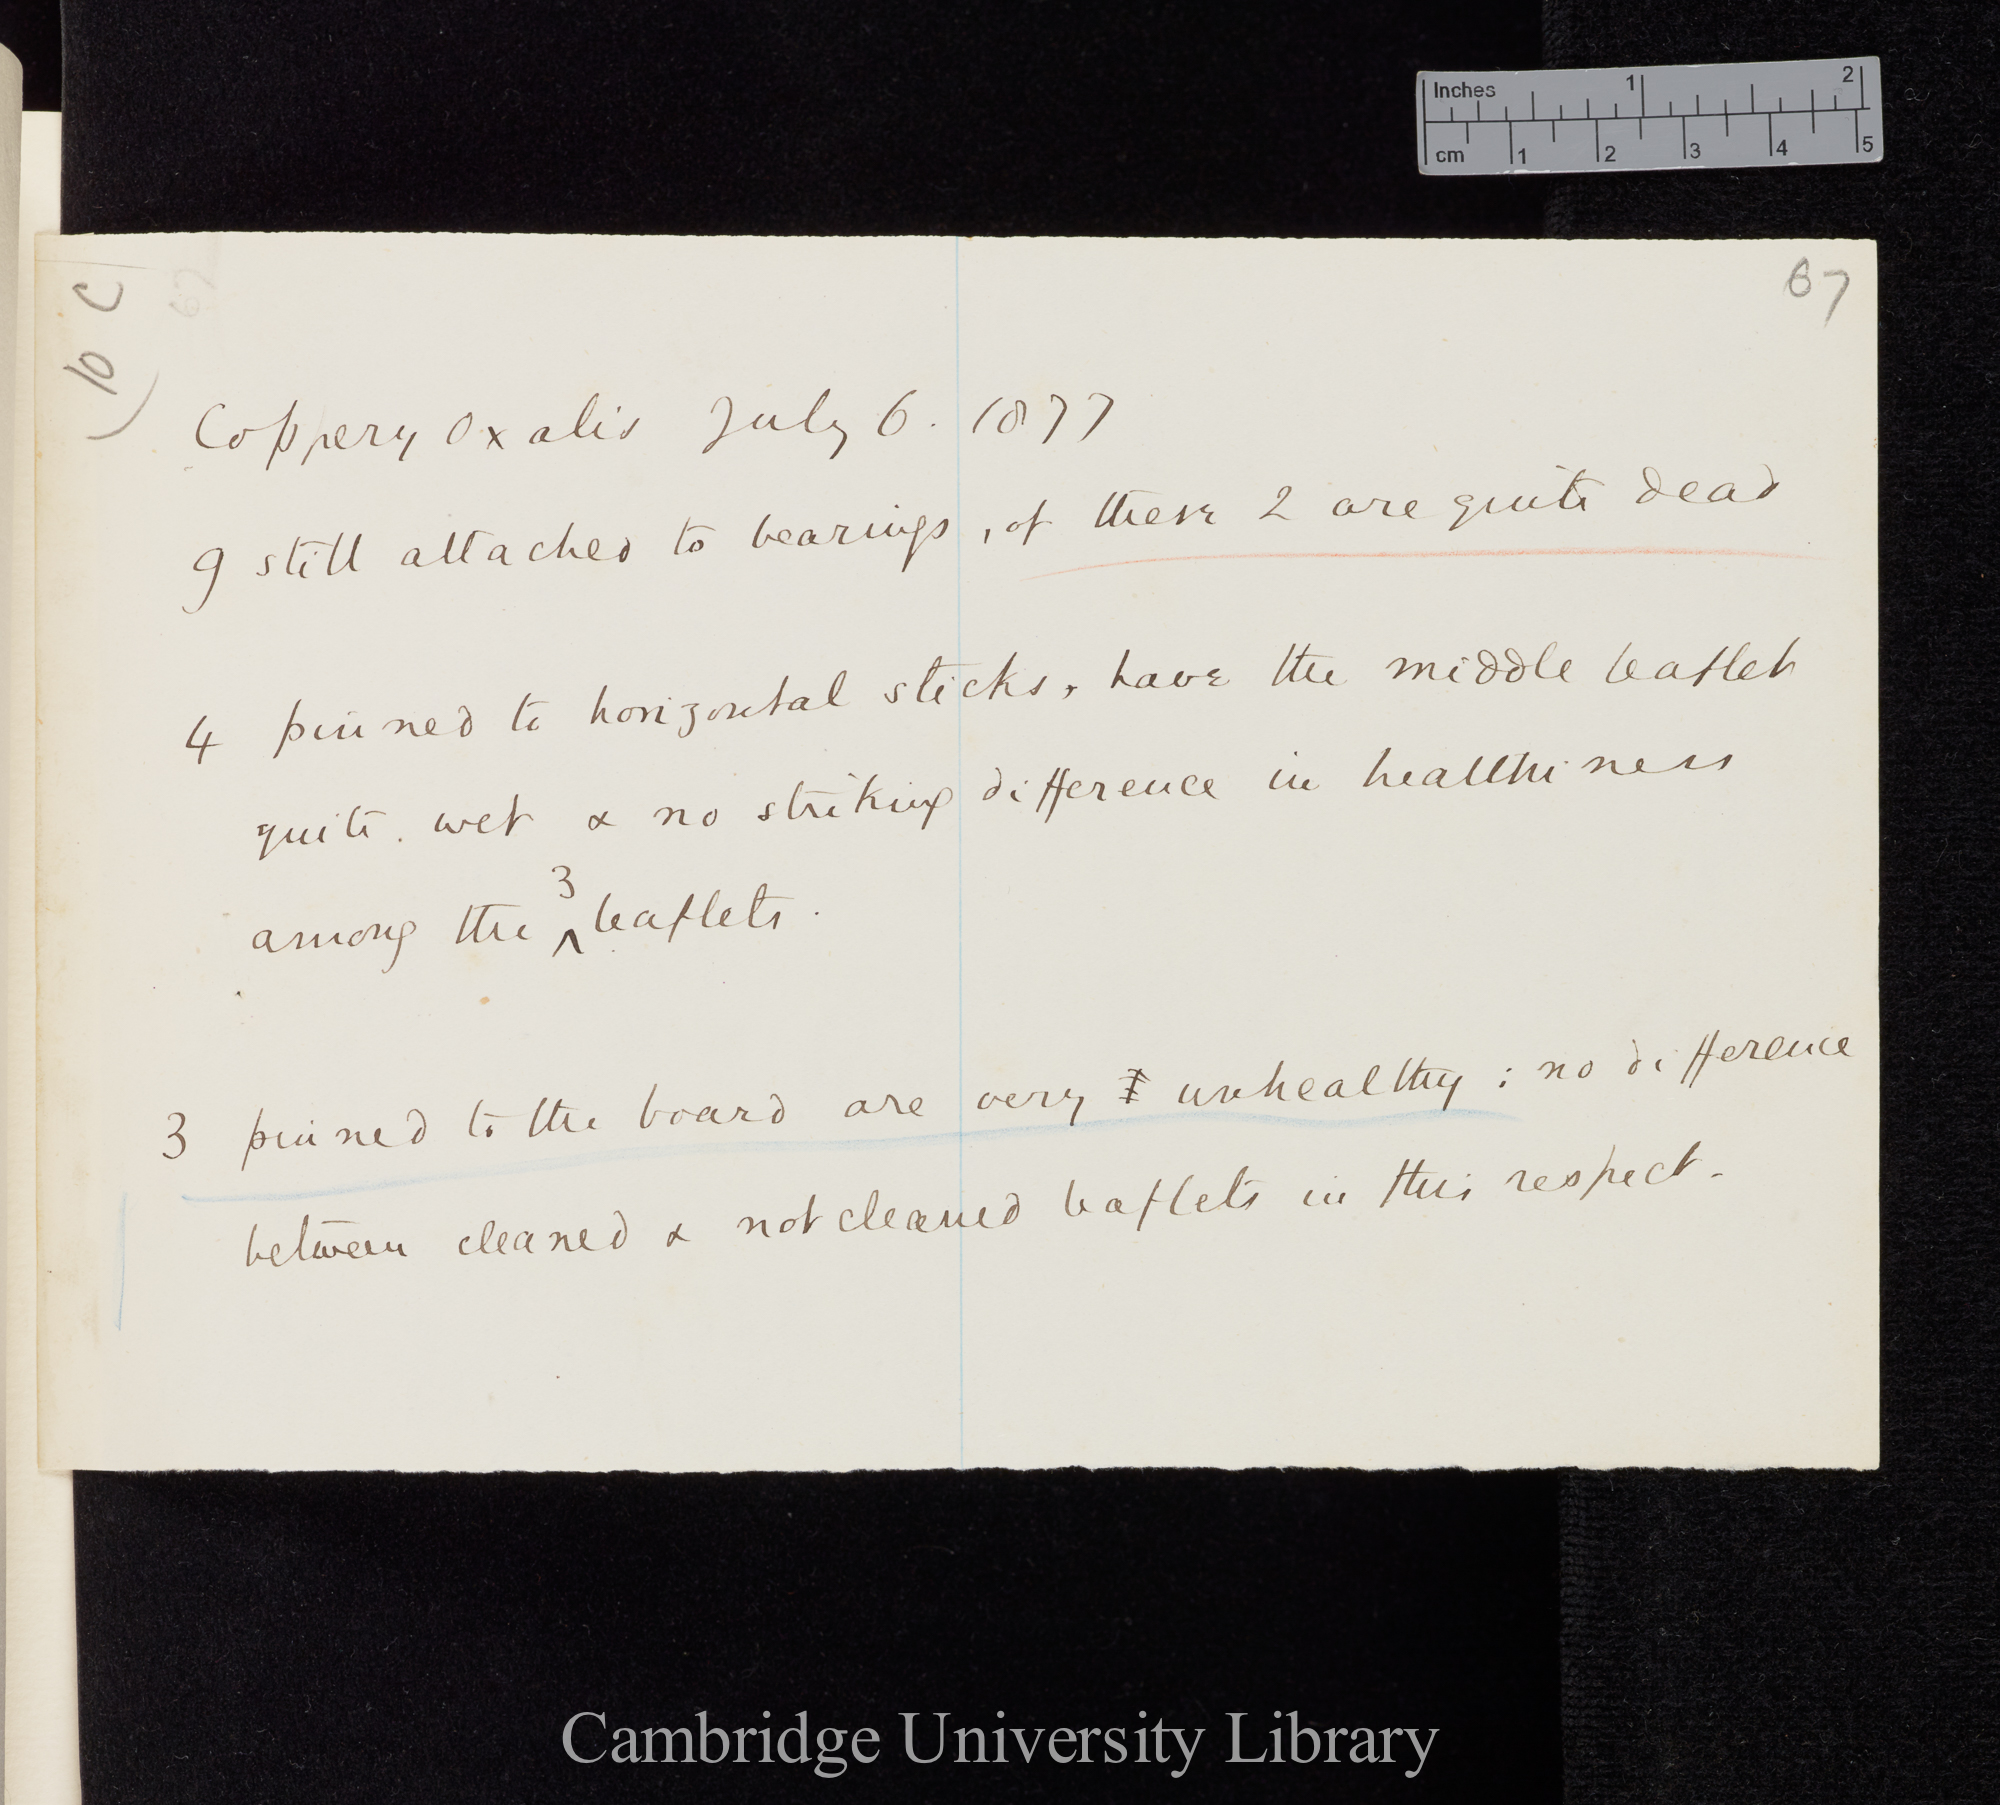 Inches 1 2
cm 1 2 3 4 5
67
10 C
Coppery Oxalis July 6. 1877
9 still attached to bearings, of these 2 are quite dead
4 pinned to horizontal sticks, have the middle leaflet
quite wet & no striking difference in healthiness
among the 3 leaflets.
3 pinned to the board are very unhealthy: no difference
between cleaned & not cleaned leaflets in this respect.
Cambridge University Library